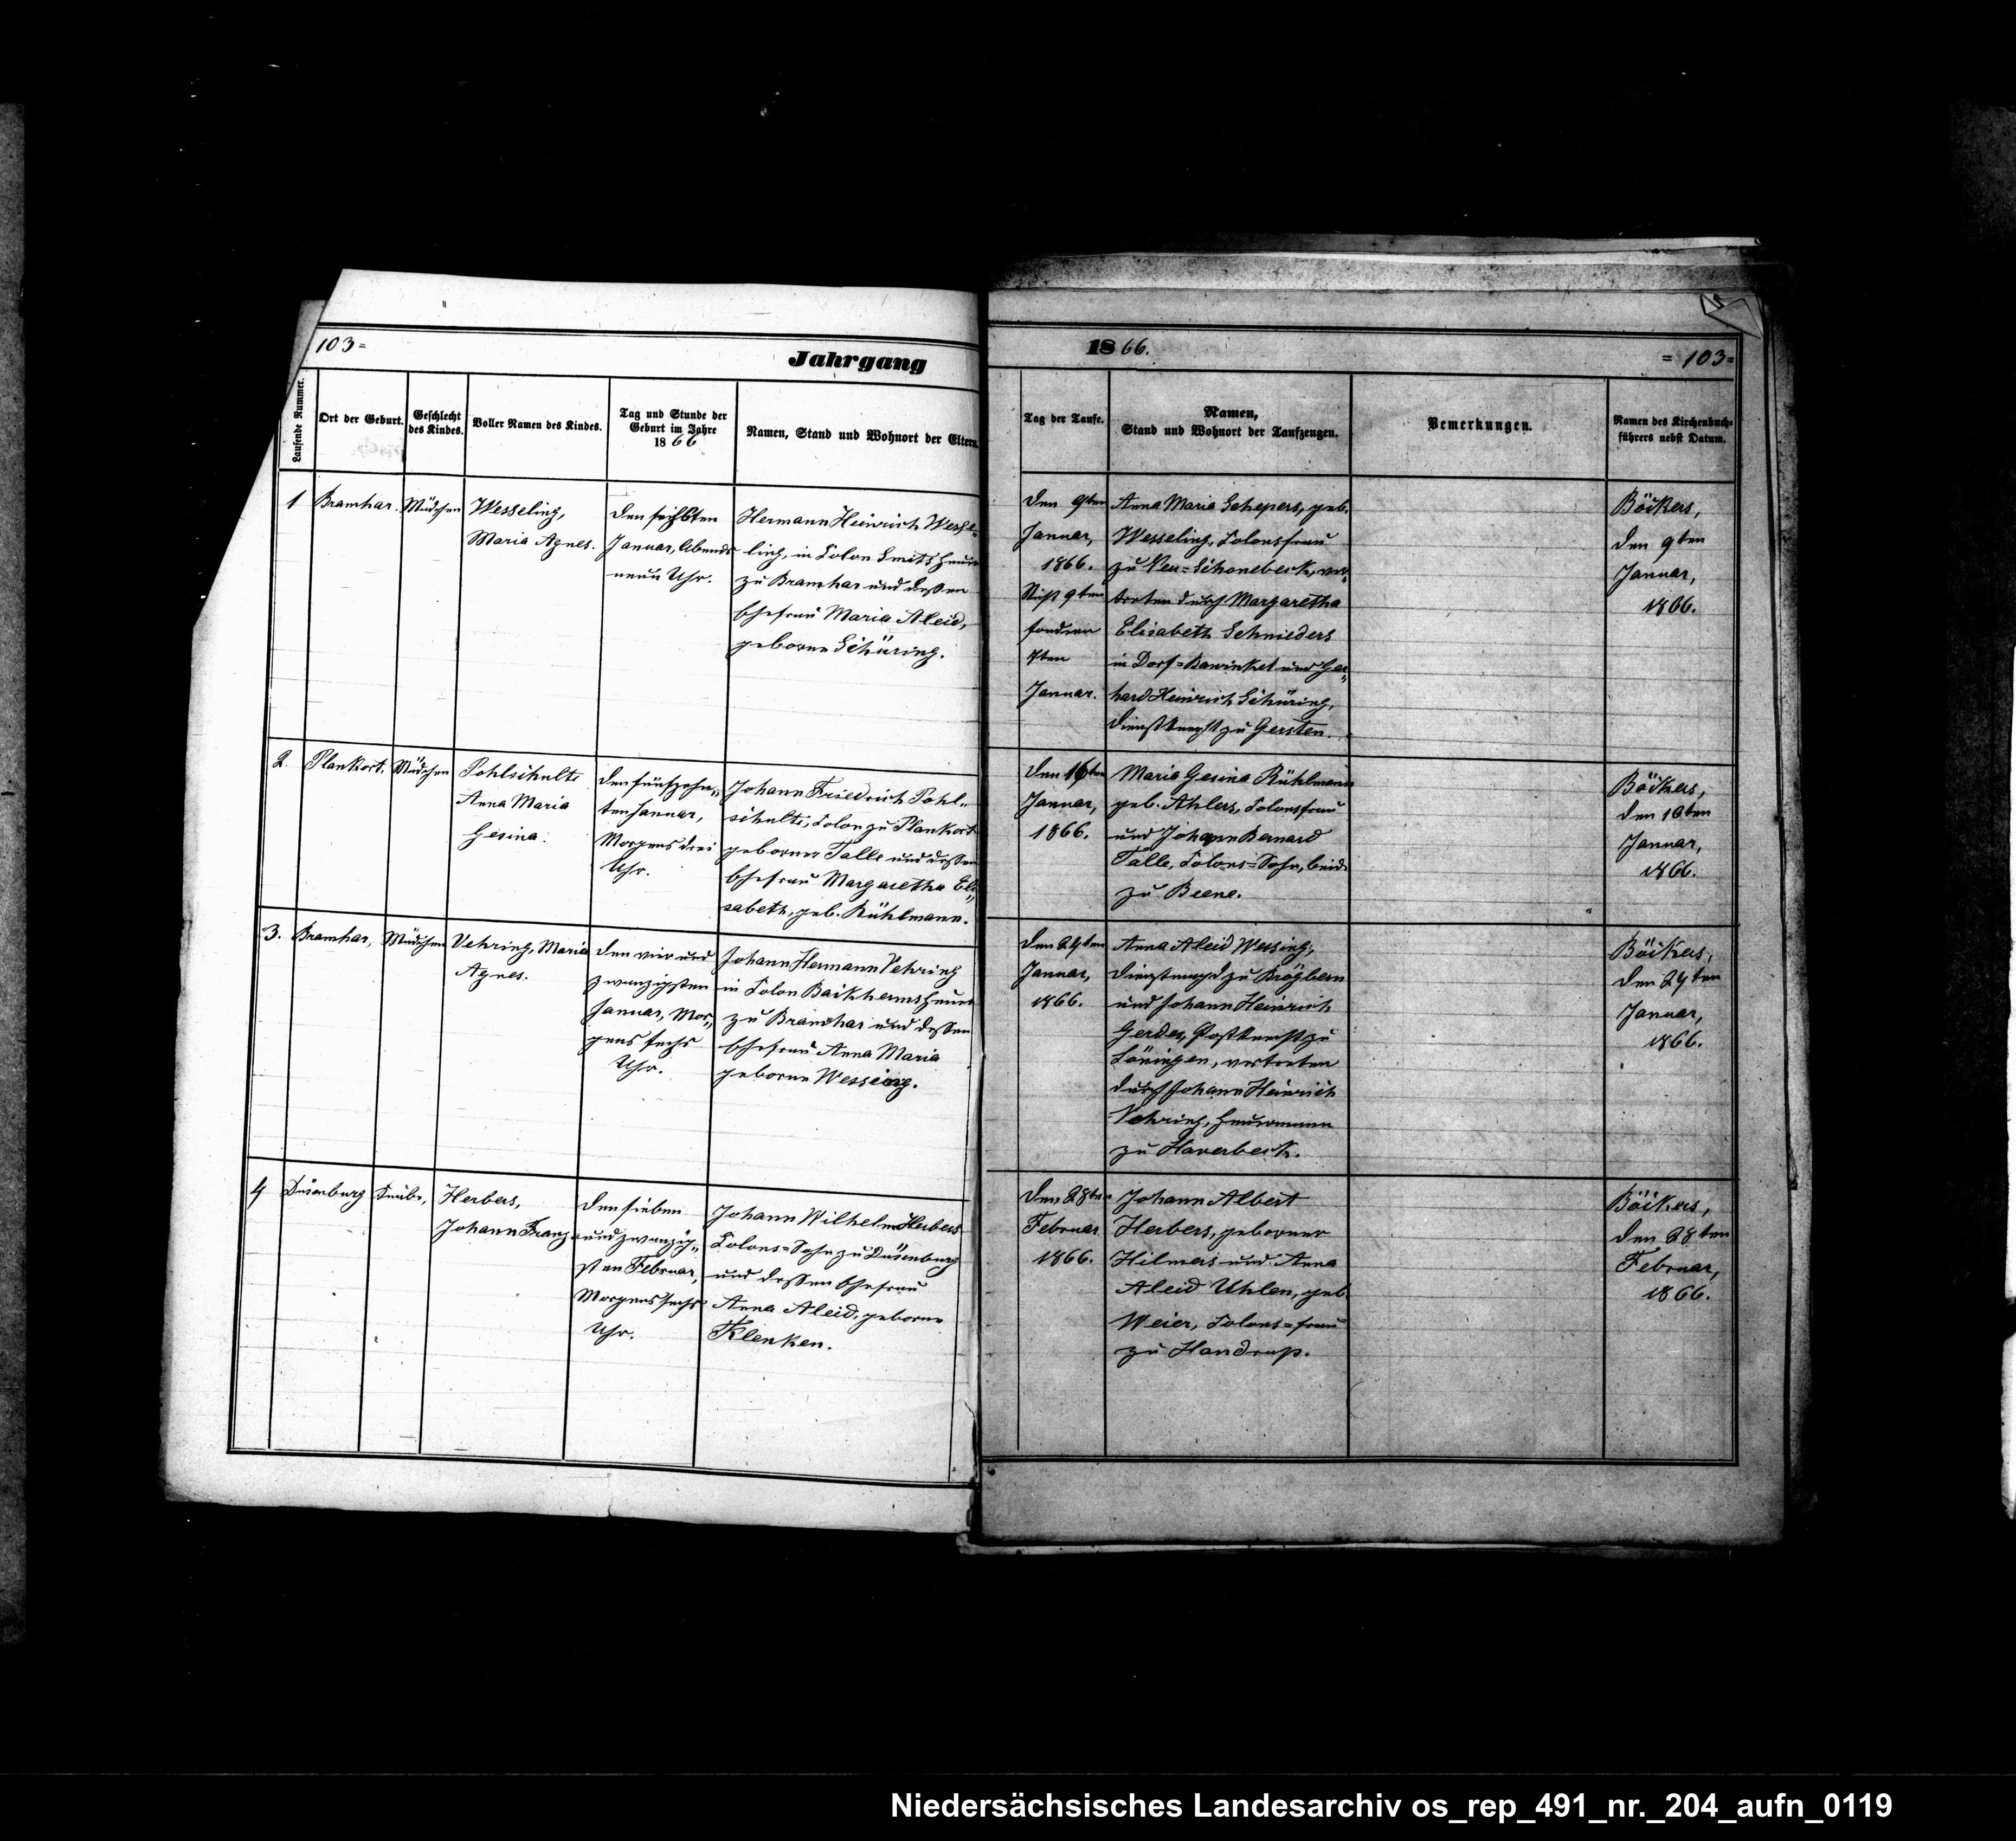 103=
Jahrgang
Laufende Nummer.
Ort der Geburt.
Geschlecht
des Kindes.
Voller Namen des Kindes.
Tag und Stunde der
Geburt im Jahre
1866
Namen, Stand und Wohnort der Eltern.
1
Bramhar.
Mädchen
Wesseling,
Maria Agnes.
den sechsten
Januar, Abends
neun Uhr.
Hermann Heinrich Wesse-
ling, in Colon Smits Heuer
zu Bramhar und dessen
Ehefrau Maria Aleid,
geborne Schüring.
2.
Plankort,
Mädchen
Pohlschulte
Anna Maria
Gesina.
den fünfzehn-
ten Januar,
Morgens drei
Uhr.
Johann Friedrich Pohl-
schulte, Colon zu Plankort
geborner Talle und dessen
Ehefrau Margaretha Eli-
sabeth, geb. Kühlmann.
3.
Bramhar,
Mädchen
Vehring, Maria
Agnes.
den vier und
zwanzigsten
Januar, Mor-
gens sechs
Uhr.
Johann Hermann Vehring
in Colon Heuer
zu Bramhar und dessen
Ehefrau Anna Maria
geborne Wessing.
4
Düsenburg
Knabe,
Herbers,
Johann Franz
den sieben
und zwanzig-
sten Februar,
Morgens sechs
Uhr.
Johann Wilhelm Herbers
Colons=Sohn zu Düsenburg
und dessen Ehefrau
Anna Aleid, geborne
Klenken.
1866.
= 103=
Tag der Taufe.
Namen,
Stand und Wohnort der Taufzeugen.
Bemerkungen.
Namen des Kirchenbuch-
führers nebst Datum.
den 9ten
Januar,
1866.
Nicht 9ten
sondern
7ten
Januar.
Anna Maria Schepers, geb.
Wesseling, Colonsfrau
zu Neu=Schonebeck, ver-
treten durch Margaretha
Elisabeth Schnieders
in Dorf=Bawinkel und Ger-
hard Heinrich Schüring,
Dienstknecht zu Gersten.
Böckers,
den 9ten
Januar,
1866.
den 16ten
Januar,
1866.
Maria Gesina Kühlmann
geb. Ahlers, Colonsfrau
und Johann Bernard
Talle, Colons=Sohn, beide
zu Beene.
Böckers,
den 16ten
Januar,
1866.
den 24ten
Januar,
1866.
Anna Aleid Wessing,
Dienstmagd zu Brögbern
und Johann Heinrich
Gerdes, Postknecht zu
Löningen, vertreten
durch Johann Heinrich
Vehring, Heuermann
zu Haverbeck.
Böckers,
den 24ten
Januar,
1866.
den 28ten
Februar
1866.
Johann Albert
Herbers, geborner
Hilmers und Anna
Aleid Uhlen, geb.
Weier, Colons=frau
zu Handrup.
Böckers,
den 28ten
Februar,
1866.
Niedersächsisches Landesarchiv os_rep_491_nr._204_aufn_0119